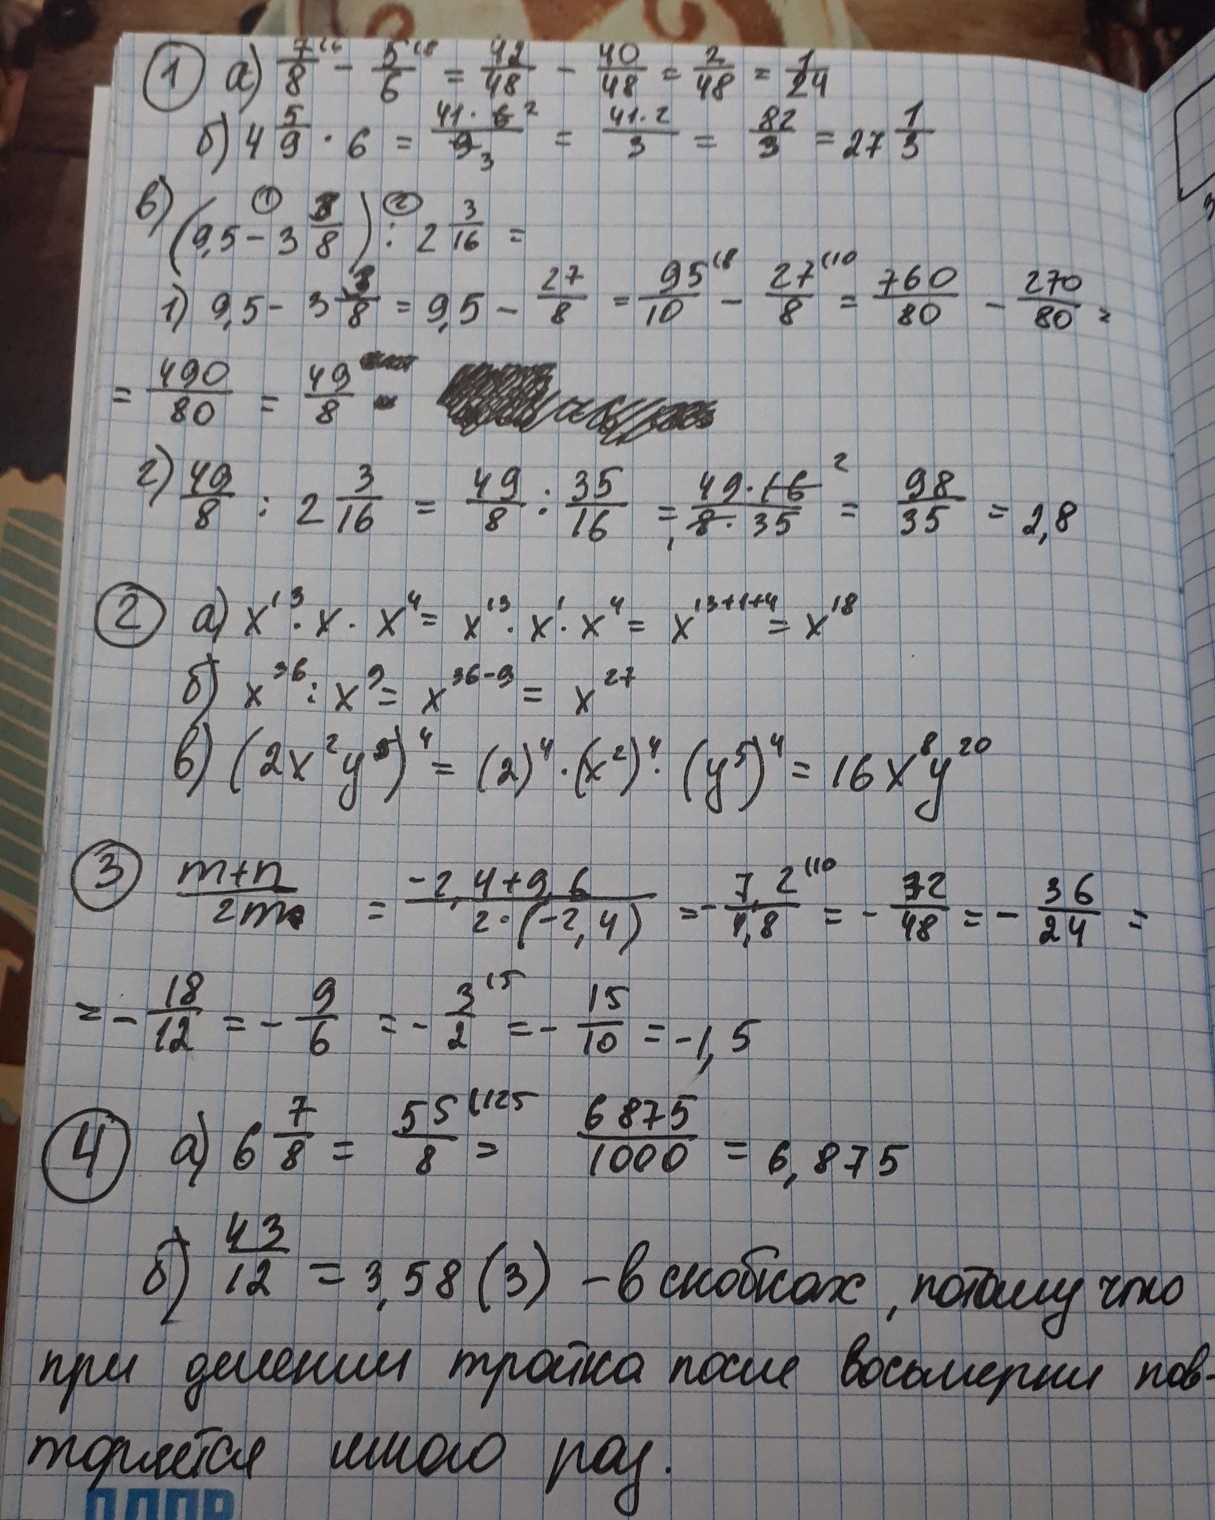 1 а) 7/8 (6 - 5/6 (8 = 42/48 - 40/48 = 2/48 = 1/24
б) 4 5/9 · 6 = 41·6 2/9 3 = 41·2/3 = 82/3 = 27 1/3
в) (9,5 - 3 3/8) : 2 3/16 =
1) 9,5 - 3 3/8 = 9,5 - 27/8 = 95/10 (8 - 27/8 (10 = 760/80 - 270/80 =
= 490/80 = 49/8
2) 49/8 : 2 3/16 = 49/8 : 35/16 = 49·16 2/1 8·35 = 98/35 = 2,8
2 а) x¹³ · x · x⁴ = x¹³ · x¹ · x⁴ = x¹³⁺¹⁺⁴ = x¹⁸
б) x³⁶ : x⁹ = x³⁶⁻⁹ = x²⁷
в) (2x²y⁵)⁴ = (2)⁴ · (x²)⁴ · (y⁵)⁴ = 16x⁸y²⁰
3 m+n/2m = -2,4+9,6/2·(-2,4) = -7,2/4,8 (10 = -72/48 = -36/24 =
= -18/12 = -9/6 = -3/2 (5 = -15/10 = -1,5
4 а) 6 7/8 = 55/8 (125 = 6875/1000 = 6,875
б) 43/12 = 3,58(3) - в скобках, потому что
при делении тройка после восьмерки пов-
торяется много раз.